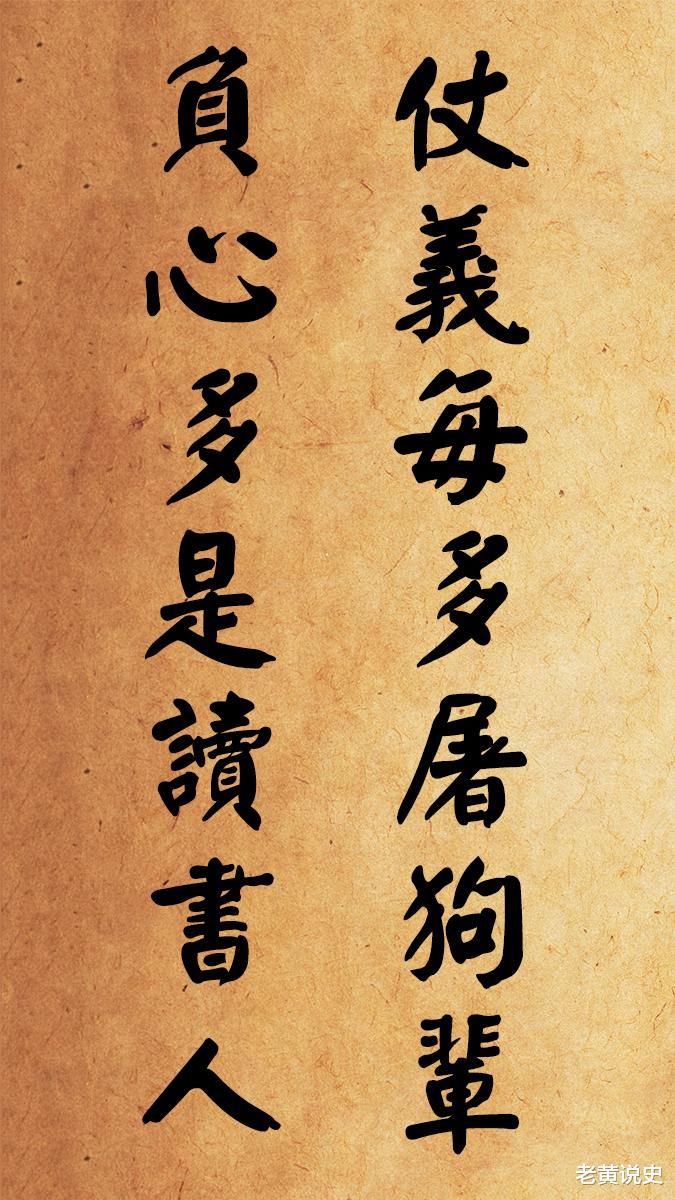 仗義每多屠狗輩
負心多是讀書人
老黄说史